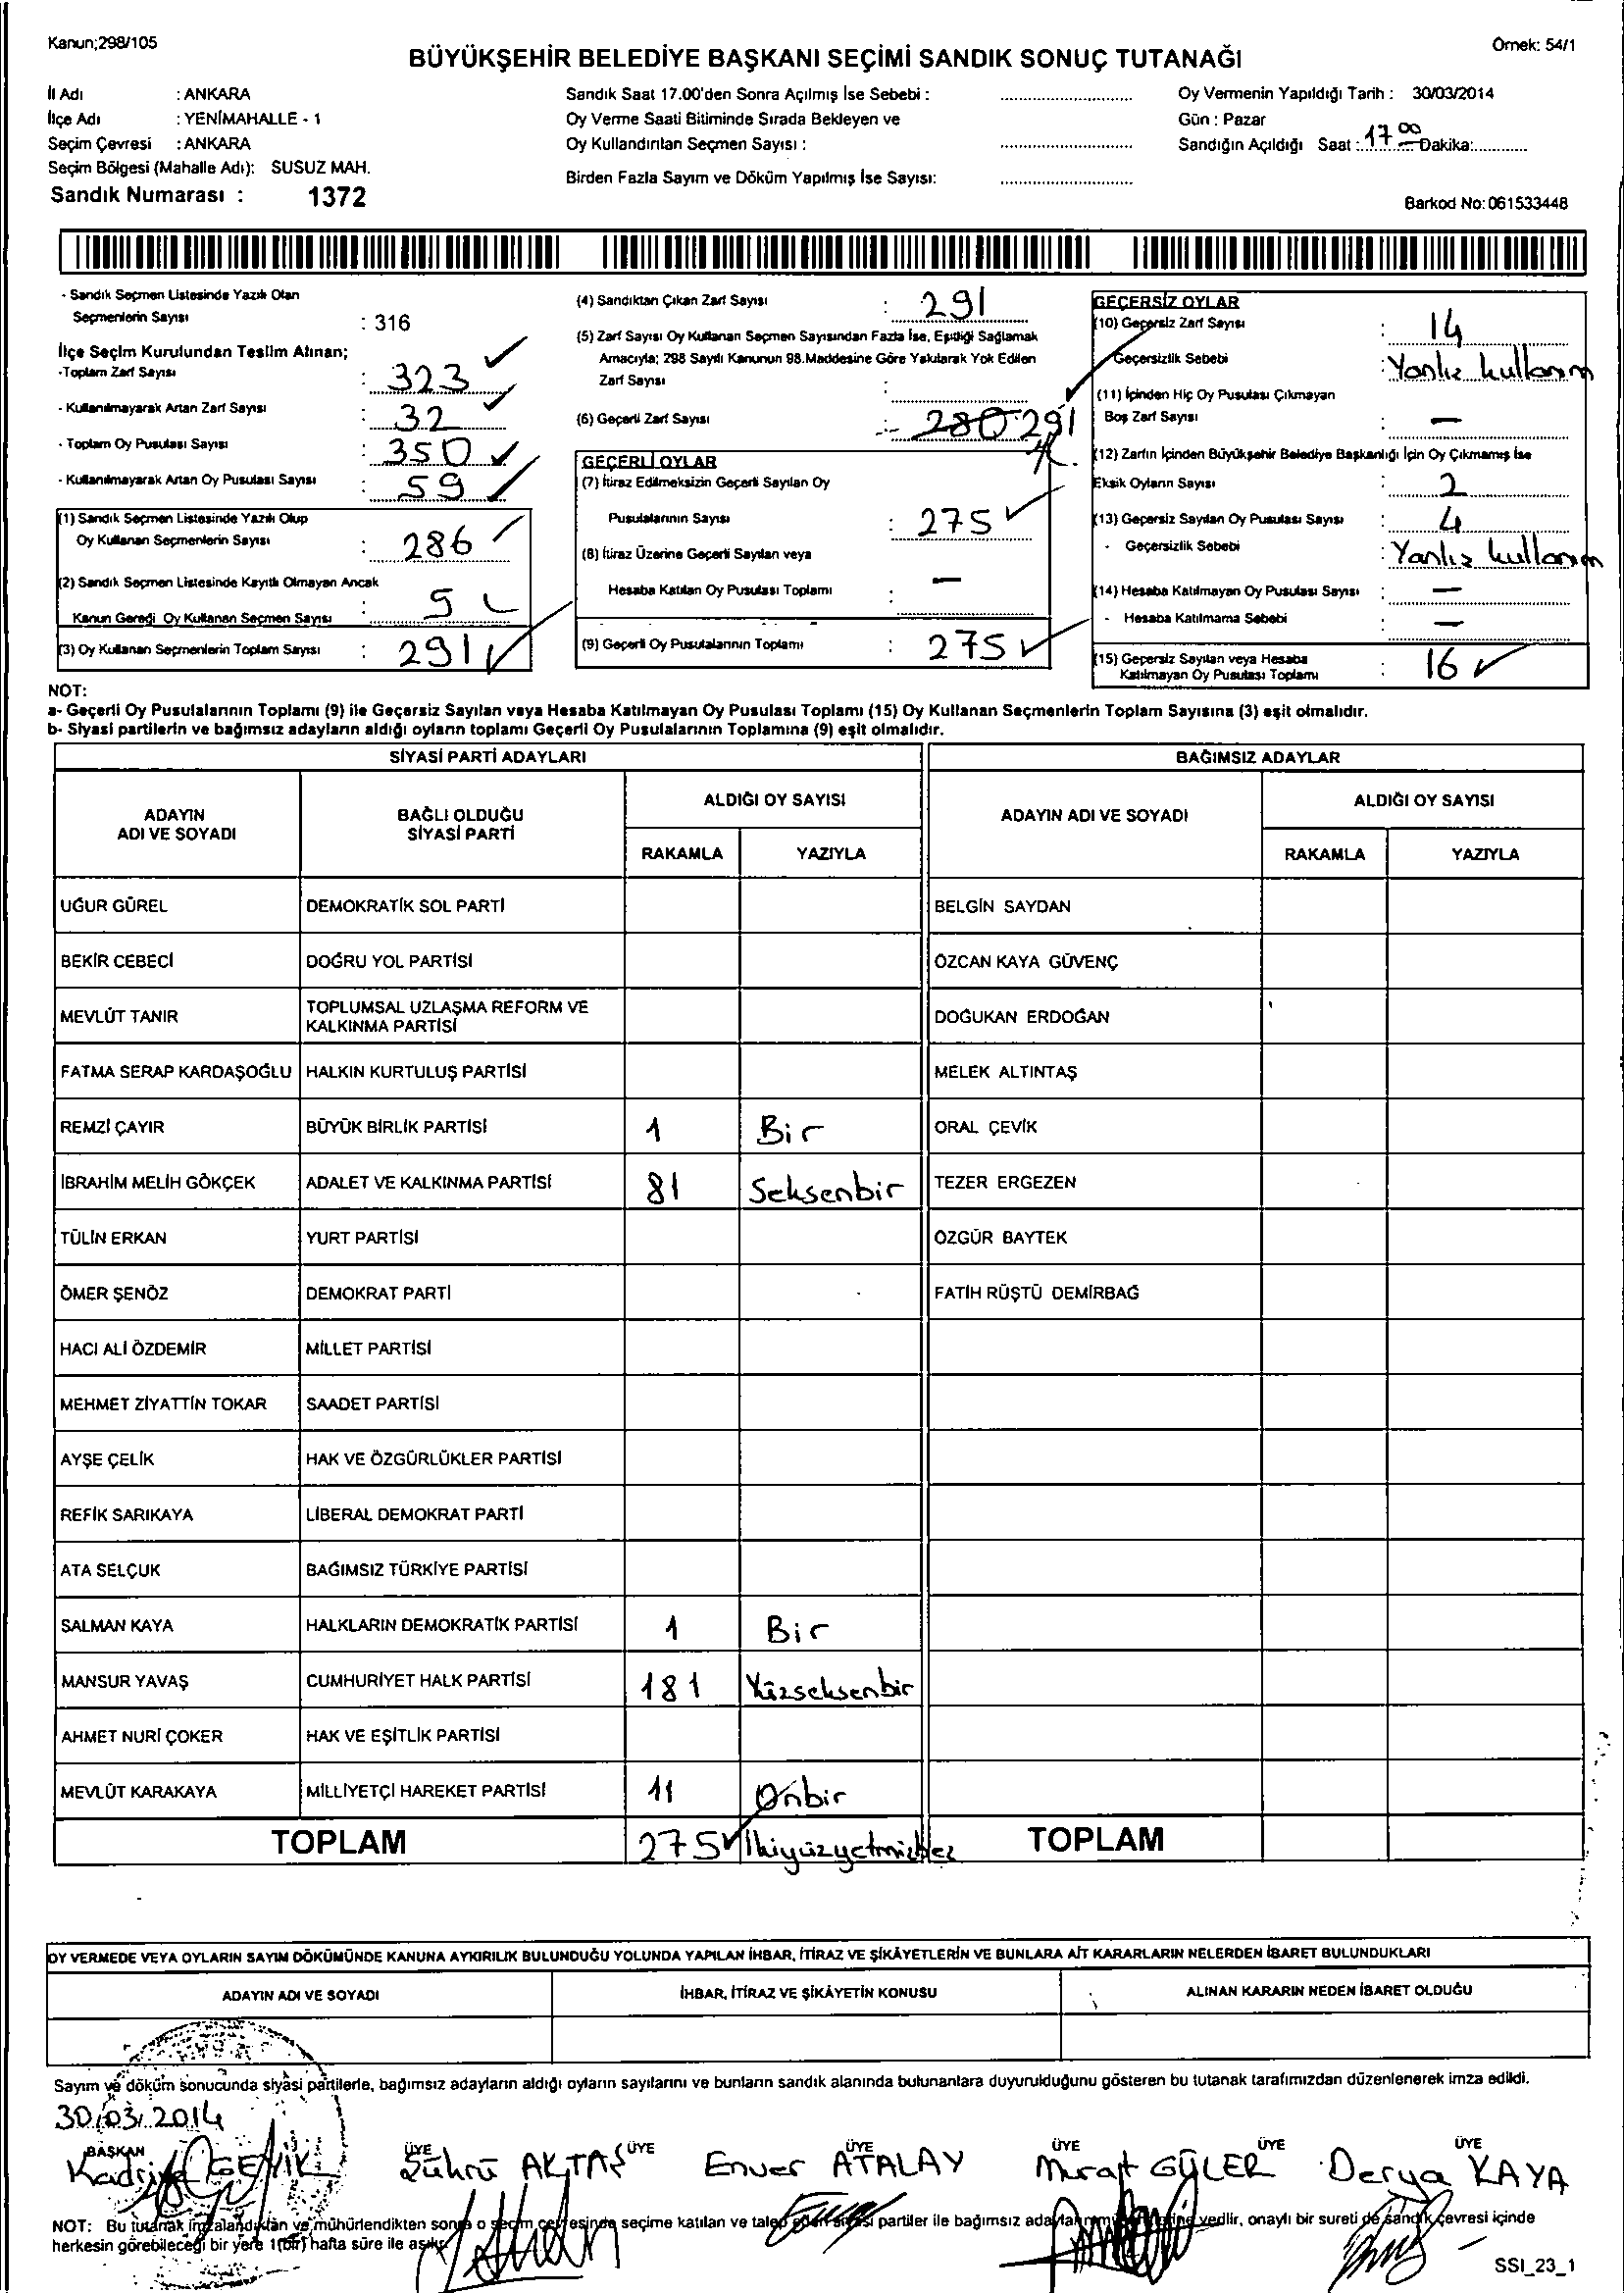 Kanun;298/105
Örnek: 54/1
BÜYÜKŞEHİR BELEDİYE BAŞKANI SEÇİMİ SANDIK SONUÇ TUTANAĞI
İl Adı : ANKARA
İlçe Adı : YENİMAHALLE - 1
Seçim Çevresi : ANKARA
Seçim Bölgesi (Mahalle Adı): SUSUZ MAH.
Sandık Numarası : 1372
Sandık Saat 17.00'den Sonra Açılmış İse Sebebi :
Oy Verme Saati Bitiminde Sırada Bekleyen ve
Oy Kullandırılan Seçmen Sayısı :
Birden Fazla Sayım ve Döküm Yapılmış İse Sayısı:
Oy Vermenin Yapıldığı Tarih : 30/03/2014
Gün : Pazar
Sandığın Açıldığı Saat : 17 00 Dakika:
Barkod No:061533448
- Sandık Seçmen Listesinde Yazılı Olan
Seçmenlerin Sayısı : 316
İlçe Seçim Kurulundan Teslim Alınan;
-Toplam Zarf Sayısı : 323
- Kullanılmayarak Artan Zarf Sayısı : 32
- Toplam Oy Pusulası Sayısı : 350
- Kullanılmayarak Artan Oy Pusulası Sayısı : 59
(1) Sandık Seçmen Listesinde Yazılı Olup
Oy Kullanan Seçmenlerin Sayısı : 286
(2) Sandık Seçmen Listesinde Kayıtlı Olmayan Ancak
Kanun Gereği Oy Kullanan Seçmen Sayısı : 5
(3) Oy Kullanan Seçmenlerin Toplam Sayısı : 291
(4) Sandıktan Çıkan Zarf Sayısı : 291
(5) Zarf Sayısı Oy Kullanan Seçmen Sayısından Fazla İse, Eşitliği Sağlamak
Amacıyla; 298 Sayılı Kanunun 98.Maddesine Göre Yakılarak Yok Edilen
Zarf Sayısı :
(6) Geçerli Zarf Sayısı : 280 291
GEÇERLİ OYLAR
(7) İtiraz Edilmeksizin Geçerli Sayılan Oy
Pusulalarının Sayısı : 275
(8) İtiraz Üzerine Geçerli Sayılan veya
Hesaba Katılan Oy Pusulası Toplamı : —
(9) Geçerli Oy Pusulalarının Toplamı : 275
GEÇERSİZ OYLAR
(10) Geçersiz Zarf Sayısı : 14
Geçersizlik Sebebi : Yanlız kullanım
(11) İçinden Hiç Oy Pusulası Çıkmayan
Boş Zarf Sayısı : —
(12) Zarfın İçinden Büyükşehir Belediye Başkanlığı İçin Oy Çıkmamış İse
Eksik Oyların Sayısı : 2
(13) Geçersiz Sayılan Oy Pusulası Sayısı : 4
- Geçersizlik Sebebi : Yanlız kullanım
(14) Hesaba Katılmayan Oy Pusulası Sayısı : —
- Hesaba Katılmama Sebebi : —
(15) Geçersiz Sayılan veya Hesaba
Katılmayan Oy Pusulası Toplamı : 16
NOT:
a- Geçerli Oy Pusulalarının Toplamı (9) ile Geçersiz Sayılan veya Hesaba Katılmayan Oy Pusulası Toplamı (15) Oy Kullanan Seçmenlerin Toplam Sayısına (3) eşit olmalıdır.
b- Siyasi partilerin ve bağımsız adayların aldığı oyların toplamı Geçerli Oy Pusulalarının Toplamına (9) eşit olmalıdır.
SİYASİ PARTİ ADAYLARI BAĞIMSIZ ADAYLAR
ADAYIN
ADI VE SOYADI
BAĞLI OLDUĞU
SİYASİ PARTİ
ALDIĞI OY SAYISI
RAKAMLA YAZIYLA
ADAYIN ADI VE SOYADI
ALDIĞI OY SAYISI
RAKAMLA YAZIYLA
UĞUR GÜREL DEMOKRATİK SOL PARTİ BELGİN SAYDAN
BEKİR CEBECİ DOĞRU YOL PARTİSİ ÖZCAN KAYA GÜVENÇ
MEVLÜT TANIR TOPLUMSAL UZLAŞMA REFORM VE
KALKINMA PARTİSİ DOĞUKAN ERDOĞAN
FATMA SERAP KARDAŞOĞLU HALKIN KURTULUŞ PARTİSİ MELEK ALTINTAŞ
REMZİ ÇAYIR BÜYÜK BİRLİK PARTİSİ 1 Bir ORAL ÇEVİK
İBRAHİM MELİH GÖKÇEK ADALET VE KALKINMA PARTİSİ 81 Seksenbir TEZER ERGEZEN
TÜLİN ERKAN YURT PARTİSİ ÖZGÜR BAYTEK
ÖMER ŞENÖZ DEMOKRAT PARTİ FATİH RÜŞTÜ DEMİRBAĞ
HACI ALİ ÖZDEMİR MİLLET PARTİSİ
MEHMET ZİYATTİN TOKAR SAADET PARTİSİ
AYŞE ÇELİK HAK VE ÖZGÜRLÜKLER PARTİSİ
REFİK SARIKAYA LİBERAL DEMOKRAT PARTİ
ATA SELÇUK BAĞIMSIZ TÜRKİYE PARTİSİ
SALMAN KAYA HALKLARIN DEMOKRATİK PARTİSİ 1 Bir
MANSUR YAVAŞ CUMHURİYET HALK PARTİSİ 181 Yüzseksenbir
AHMET NURİ ÇOKER HAK VE EŞİTLİK PARTİSİ
MEVLÜT KARAKAYA MİLLİYETÇİ HAREKET PARTİSİ 11 Onbir
TOPLAM 275 İkiyüzyetmişbeş TOPLAM
OY VERMEDE VEYA OYLARIN SAYIM DÖKÜMÜNDE KANUNA AYKIRILIK BULUNDUĞU YOLUNDA YAPILAN İHBAR, İTİRAZ VE ŞİKÂYETLERİN VE BUNLARA AİT KARARLARIN NELERDEN İBARET BULUNDUKLARI
ADAYIN ADI VE SOYADI İHBAR, İTİRAZ VE ŞİKÂYETİN KONUSU ALINAN KARARIN NEDEN İBARET OLDUĞU
Sayım ve döküm sonucunda siyasi partilerle, bağımsız adayların aldığı oyların sayılarını ve bunların sandık alanında bulunanlara duyurulduğunu gösteren bu tutanak tarafımızdan düzenlenerek imza edildi.
30/03/2014
BAŞKAN ÜYE ÜYE ÜYE ÜYE ÜYE ÜYE
Kadriye GEYİK Zührü AKTAŞ Enver ATALAY Murat GÜLER Derya KAYA
NOT: Bu tutanak imzalandıktan ve mühürlendikten sonra o seçim çevresinde seçime katılan ve talep eden siyasi partiler ile bağımsız adayların verilir, onaylı bir sureti de sandık çevresi içinde
herkesin görebileceği bir yere 1(bir) hafta süre ile asılır.
SSI_23_1